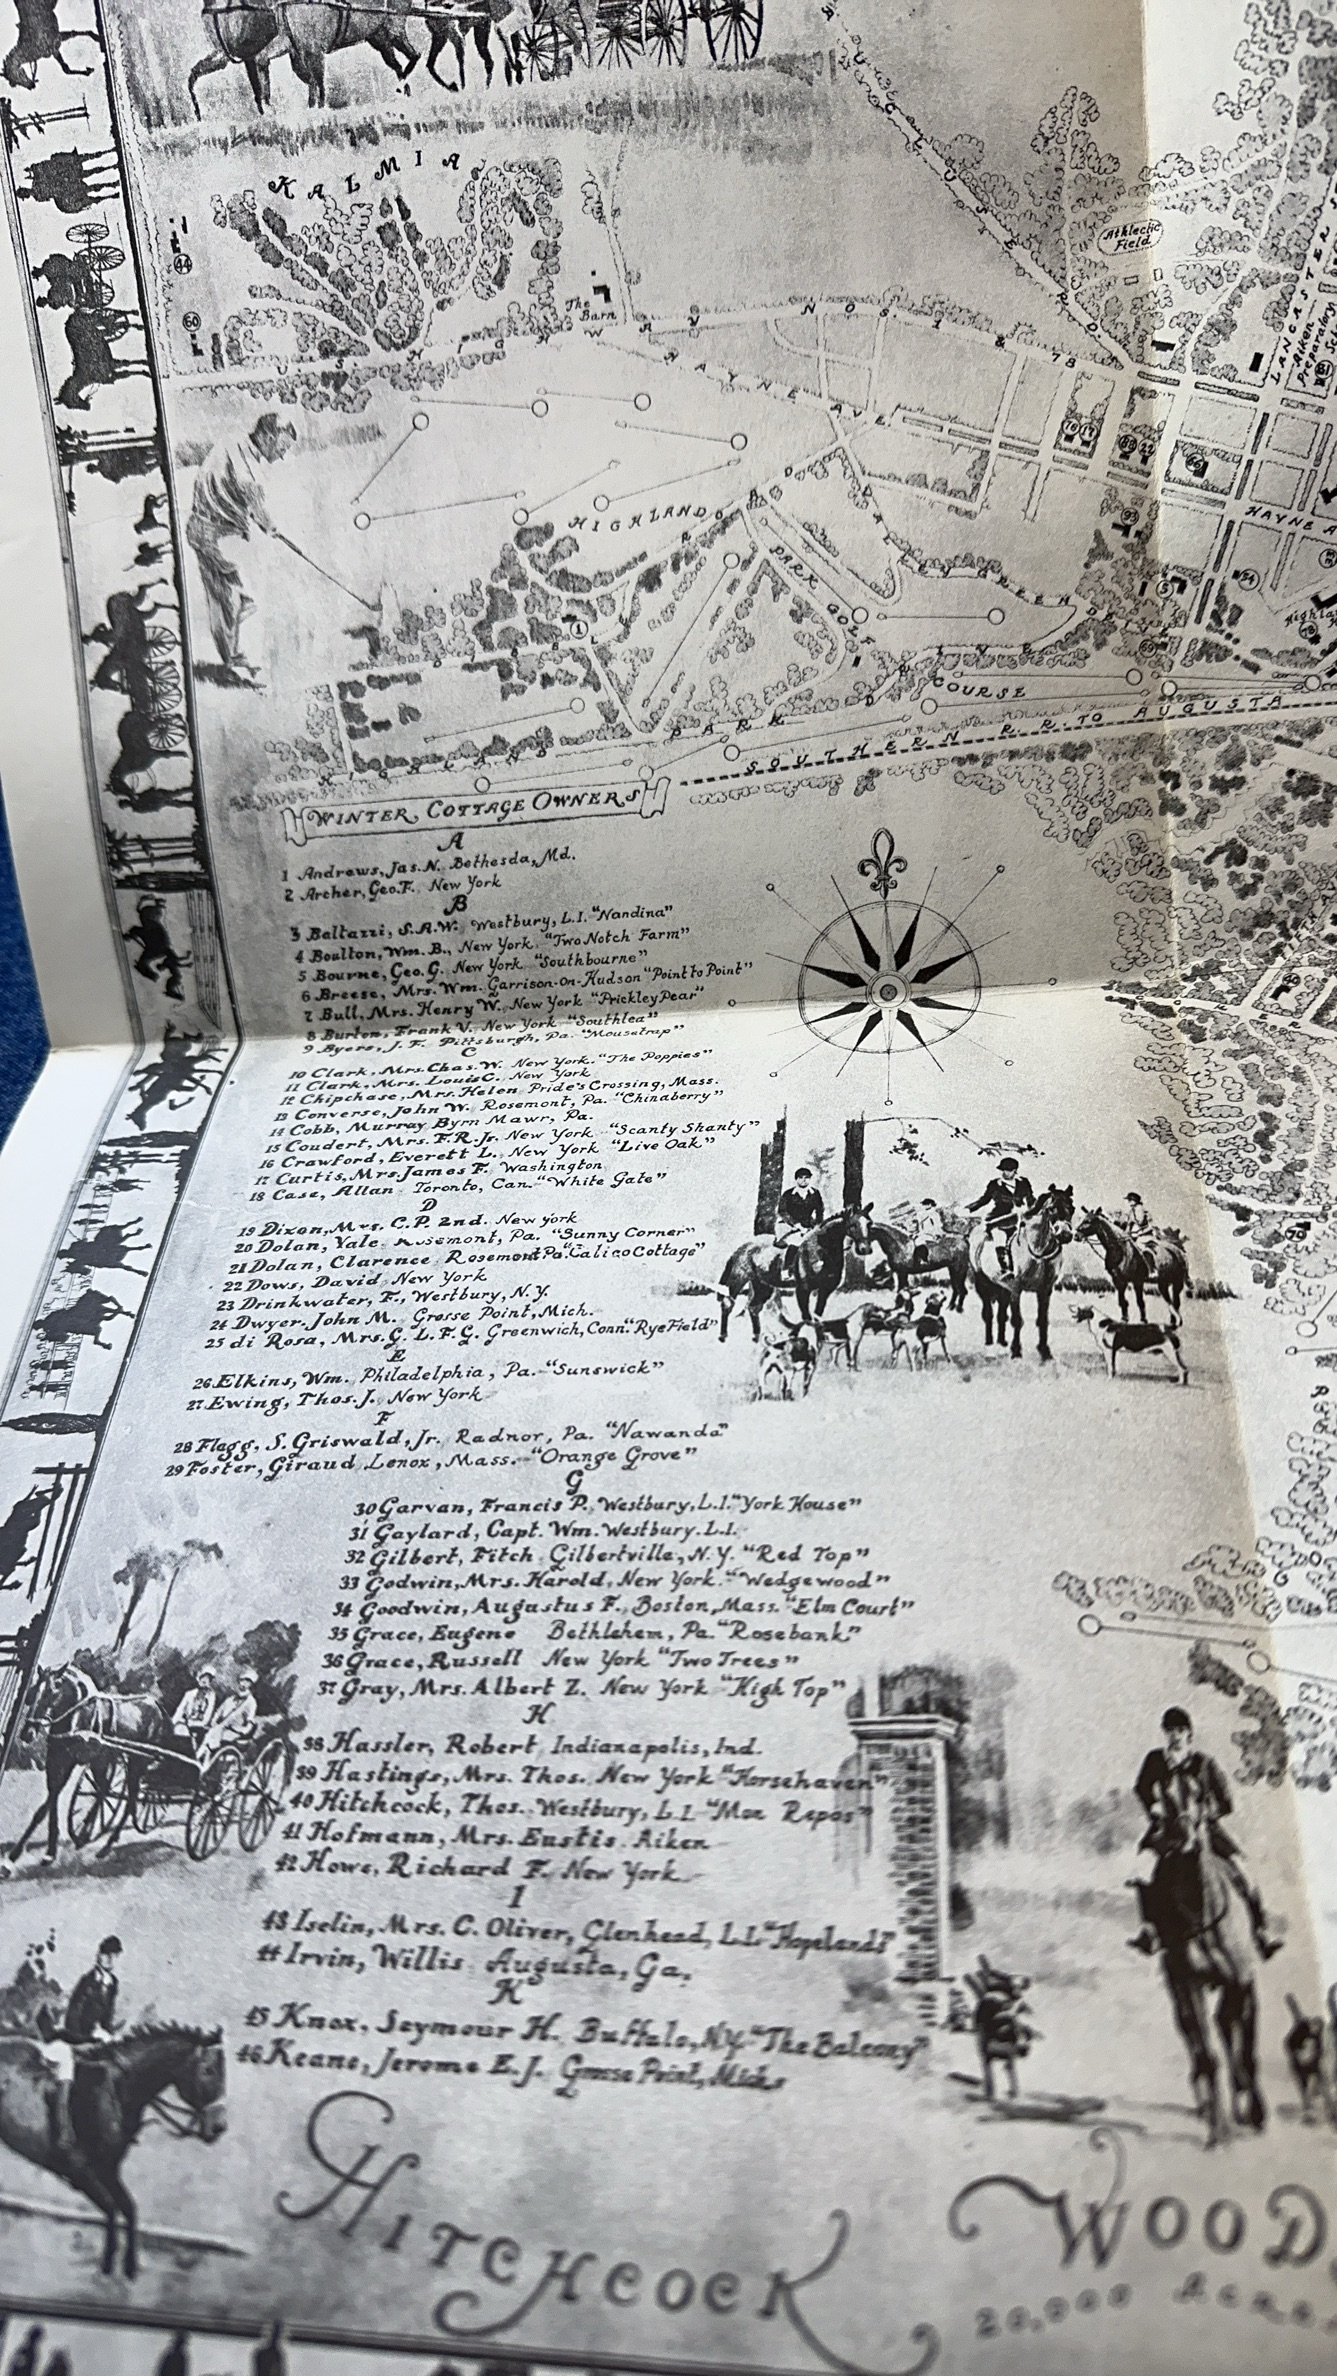 KALMIA
44
60
The Barn
U.S. HIGHWAY NOS 1 & 78
HAYNE AVE.
Athlectic Field
LANCASTER S
Aiken Preparatory Sch
81
76 17
88 22
66
93
HAYNE A
54
5
69
HIGHLAND
PARK GOLF
COURSE
1
DRIVE
HIGHLAND PARK DRIVE
SOUTHERN R.R. TO AUGUSTA
WINTER COTTAGE OWNERS
A
1 Andrews, Jas. N. Bethesda, Md.
2 Archer, Geo. F. New York
B
3 Baltazzi, S.A.W. Westbury, L.I. "Nandina"
4 Boulton, Wm. B., New York "Two Notch Farm"
5 Bourne, Geo. G. New York "Southbourne"
6 Breese, Mrs. Wm. Garrison-On-Hudson "Point to Point"
7 Bull, Mrs. Henry W. New York "Prickley Pear"
8 Burton, Frank V. New York "Southlea"
9 Byers, J. F. Pittsburgh, Pa. "Mousetrap"
C
10 Clark, Mrs. Chas. W. New York. "The Poppies"
11 Clark, Mrs. Louis C. New York
12 Chipchase, Mrs. Helen Pride's Crossing, Mass.
13 Converse, John W. Rosemont, Pa. "Chinaberry"
14 Cobb, Murray Byrn Mawr, Pa.
15 Coudert, Mrs. F.R. Jr. New York "Scanty Shanty"
16 Crawford, Everett L. New York "Live Oak"
17 Curtis, Mrs. James F. Washington
18 Case, Allan Toronto, Can. "White Gate"
D
19 Dixon, Mrs. C.P. 2nd. New York
20 Dolan, Yale Rosemont, Pa. "Sunny Corner"
21 Dolan, Clarence Rosemont Pa "Calico Cottage"
22 Dows, David New York
23 Drinkwater, F., Westbury, N.Y.
24 Dwyer, John M. Grosse Point, Mich.
25 di Rosa, Mrs. G. L. F. G. Greenwich, Conn. "Rye Field"
E
26 Elkins, Wm. Philadelphia, Pa. "Sunswick"
27 Ewing, Thos. J. New York
F
28 Flagg, S. Griswald, Jr. Radnor, Pa. "Nawanda"
29 Foster, Giraud Lenox, Mass. "Orange Grove"
G
30 Garvan, Francis P. Westbury, L.I. "York House"
31 Gaylard, Capt. Wm. Westbury. L.I.
32 Gilbert, Fitch Gilbertville, N.Y. "Red Top"
33 Godwin, Mrs. Harold, New York. "Wedgewood"
34 Goodwin, Augustus F., Boston, Mass. "Elm Court"
35 Grace, Eugene Bethlehem, Pa. "Rosebank"
36 Grace, Russell New York "Two Trees"
37 Gray, Mrs. Albert Z. New York "High Top"
H
38 Hassler, Robert Indianapolis, Ind.
39 Hastings, Mrs. Thos. New York "Horsehaven"
40 Hitchcock, Thos. Westbury, L.I. "Mon Repos"
41 Hofmann, Mrs. Eustis Aiken
42 Howe, Richard F. New York
I
43 Iselin, Mrs. C. Oliver, Glenhead, L.I. "Hopelands"
44 Irvin, Willis Augusta, Ga.
K
45 Knox, Seymour H. Buffalo, N.Y. "The Balcony"
46 Keane, Jerome E.J. Grosse Point, Mich.
70
HITCHCOCK WOOD
20,000 Acre